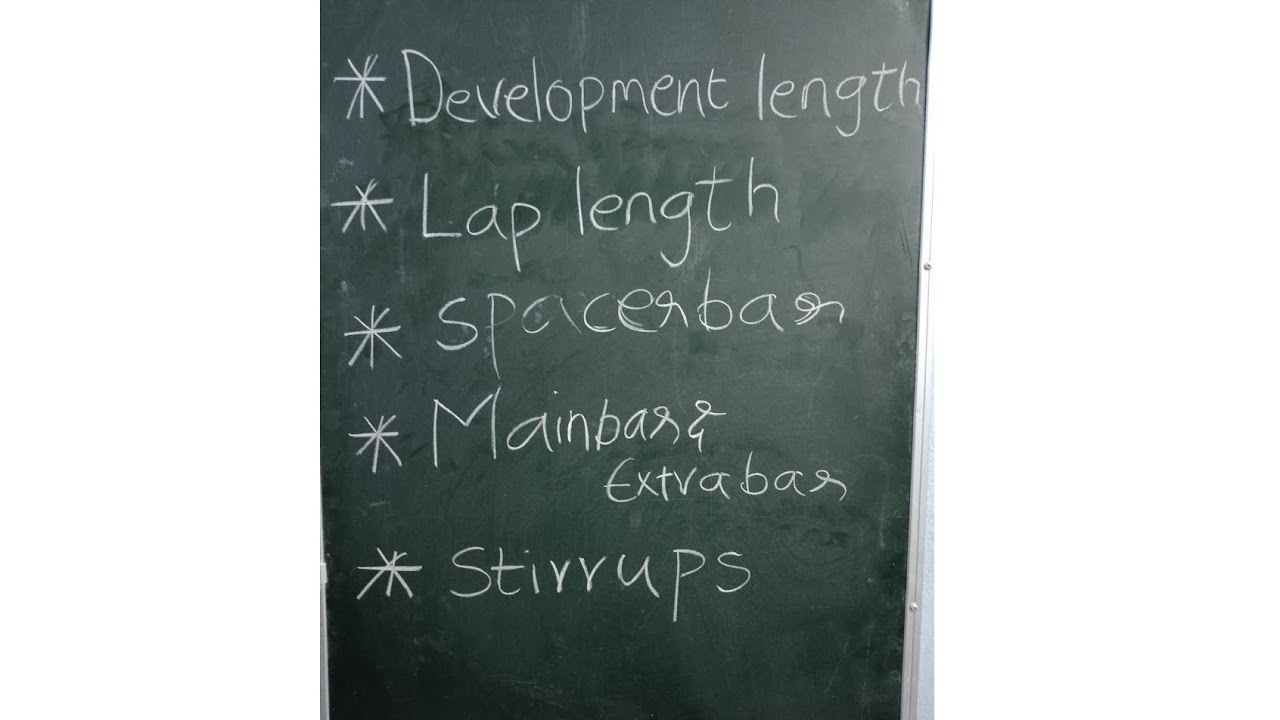 * Development length
* Lap length
* Spacerbar
* Mainbar &
Extrabar
* Stirrups